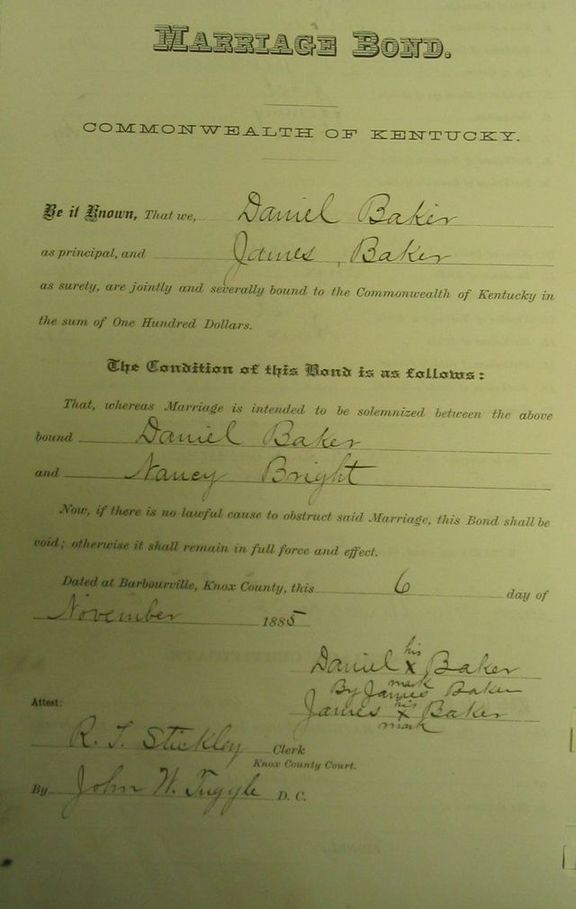 MARRIAGE BOND.
COMMONWEALTH OF KENTUCKY.
Be it Known, That we, Daniel Baker
as principal, and James Baker
as surety, are jointly and severally bound to the Commonwealth of Kentucky in
the sum of One Hundred Dollars.
The Condition of this Bond is as follows:
That, whereas Marriage is intended to be solemnized between the above
bound Daniel Baker
and Nancy Bright
Now, if there is no lawful cause to obstruct said Marriage, this Bond shall be
void; otherwise it shall remain in full force and effect.
Dated at Barbourville, Knox County, this 6 day of
November 1885
his
Daniel X Baker
mark
By James Baker
his
James X Baker
mark
Attest:
R. T. Stickley Clerk
Knox County Court.
By John W. Tuggle D. C.